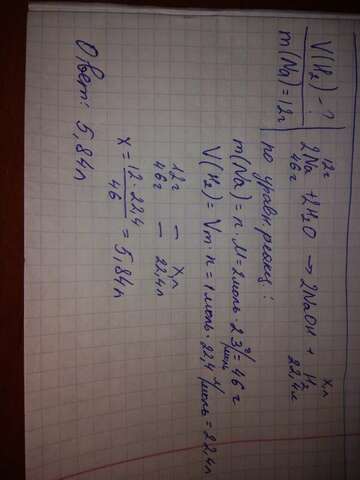 V(H₂) - ?
m(Na) = 12г
12г        Xл
2Na + 2H₂O → 2NaOH + H₂
46г        22,4л
по уравн. реакц:
m(Na) = n · M = 2моль · 23 г/моль = 46 г
V(H₂) = Vm · n = 1 моль · 22,4 л/моль = 22,4л
12г — Xл
46г — 22,4л
X = 12 · 22,4 / 46 = 5,84л
Ответ: 5,84л